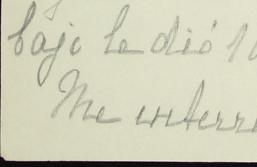 bajo le dió
Me enterr